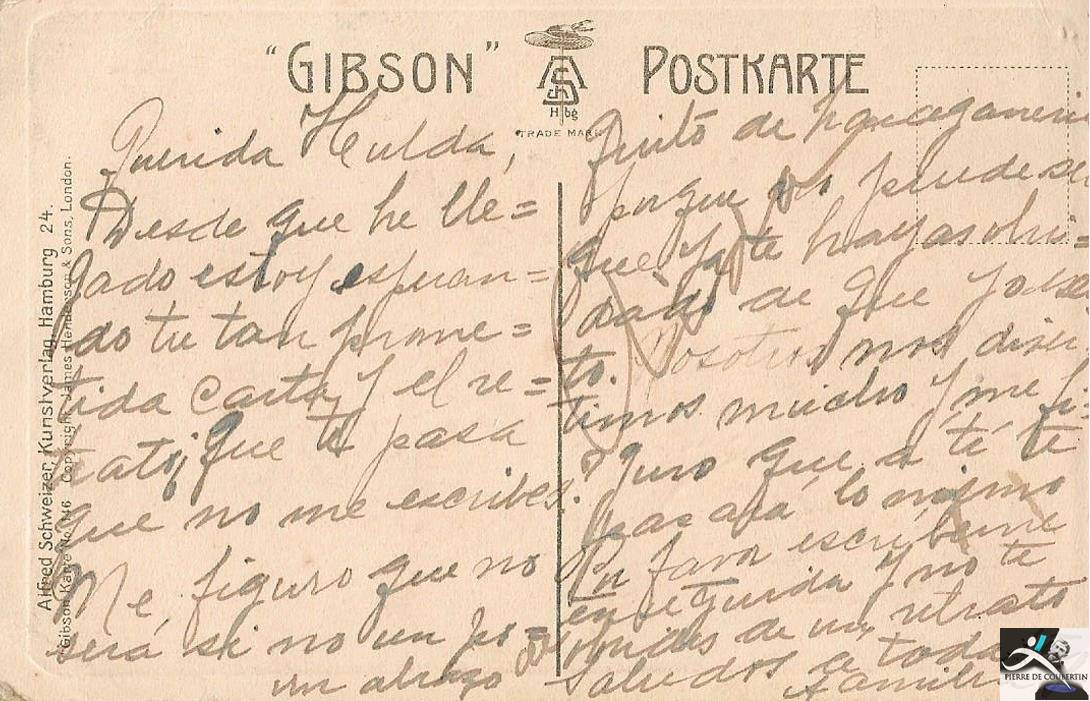 "GIBSON" POSTKARTE
H bg
TRADE MARK
Alfred Schweizer, Kunstverlag, Hamburg 24.
Gibson Karte No. 116 Copyright James Henderson & Sons, London.
Querida Hulda,
Desde que he lle=
gado estoy esperan=
do tu tan prome=
tida carta y el re=
trato, que te pasa
que no me escribes.
Me, figuro que no
será si no un po=
un abrazo
quito de
porque no puede ser
que ya te hayas olvi=
dado de que yo
to. Nosotros nos diver=
timos mucho y me fi=
guro que a té te
pasará lo mismo
Por favor escribeme
enseguida y no te
olvides de un retrato
Saludos a toda
familia
PIERRE DE COUBERTIN